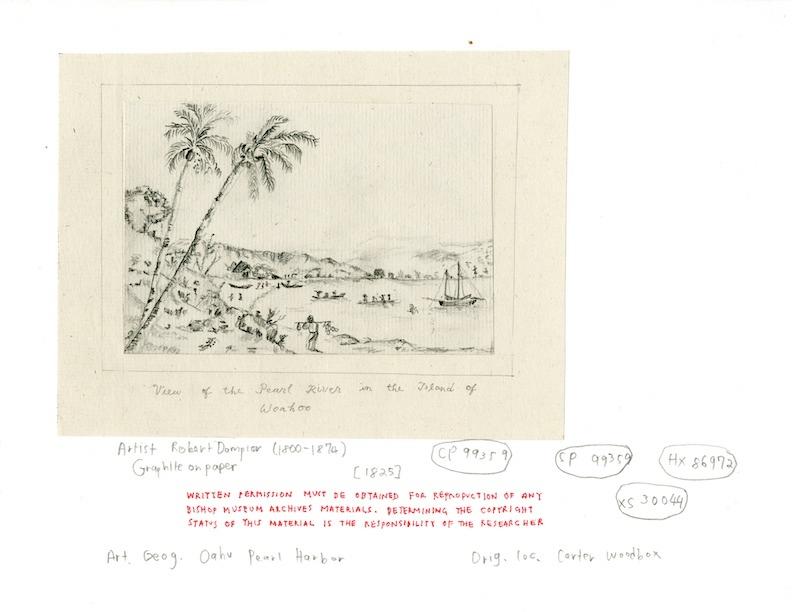 View of the Pearl River in the Island of
Woahoo
Artist Robert Dampier (1800-1874)
Graphite on paper
[1825]
CP 99359
CP 99359
HX 86972
XS 30044
WRITTEN PERMISSION MUST BE OBTAINED FOR REPRODUCTION OF ANY
BISHOP MUSEUM ARCHIVES MATERIALS. DETERMINING THE COPYRIGHT
STATUS OF THIS MATERIAL IS THE RESPONSIBILITY OF THE RESEARCHER
Art. Geog. Oahu Pearl Harbor
Orig. loc. Carter Woodbox